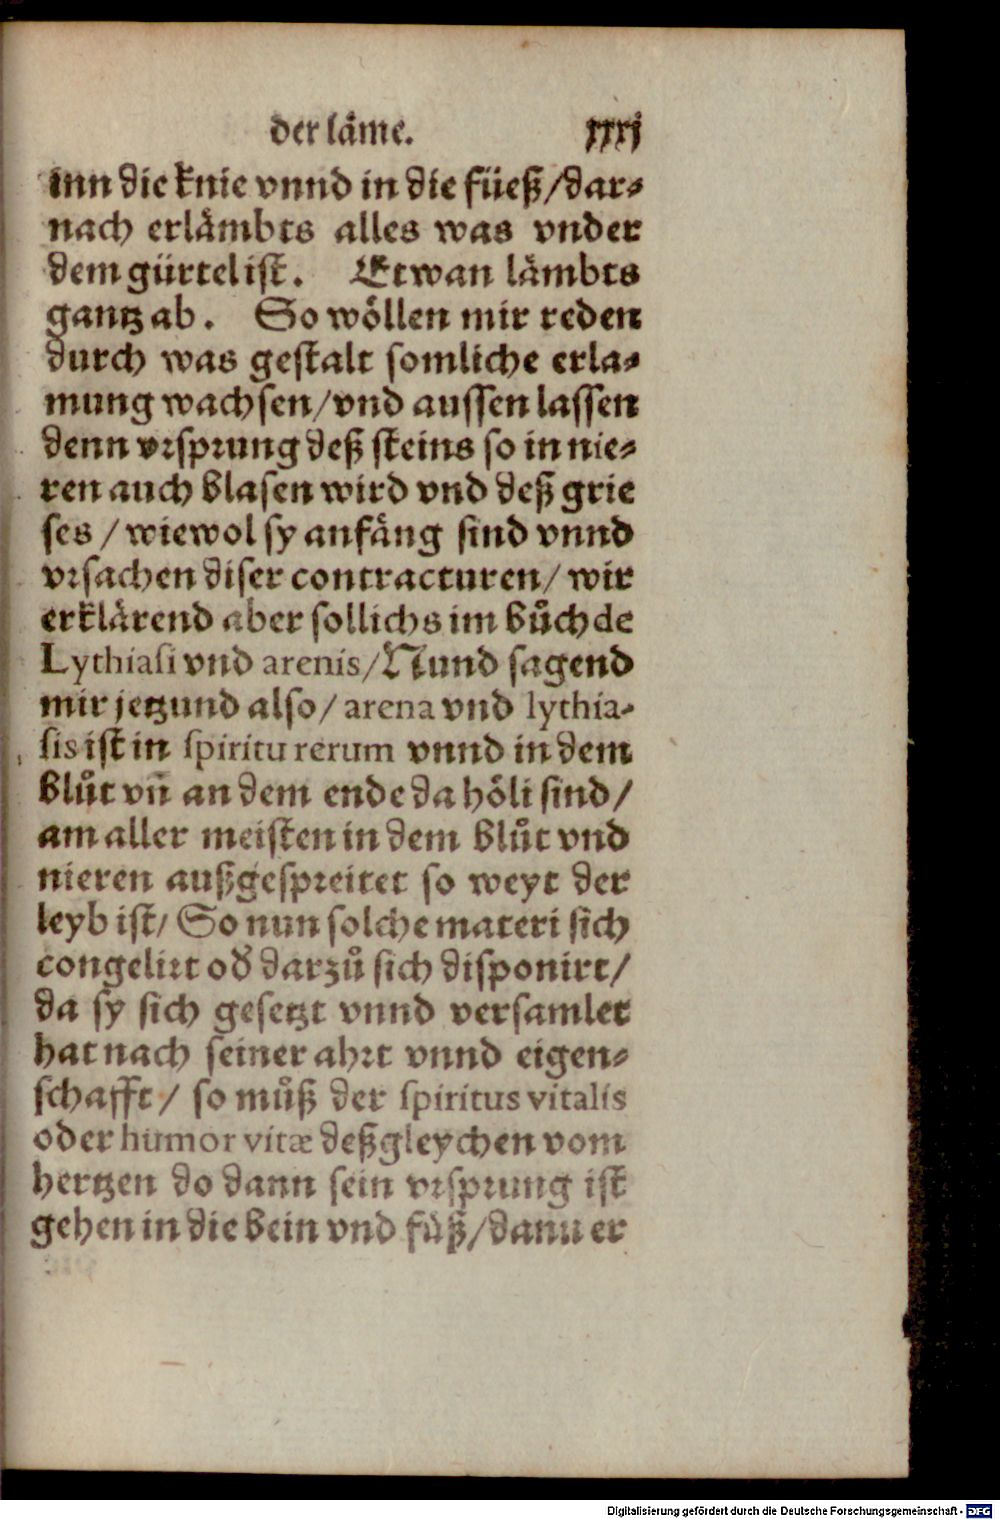 der läme. xxxj
inn die knie vnnd in die füeß/dar⸗
nach erlämbts alles was vnder
dem gürtel ist. Etwan lämbts
gantz ab. So wöllen mir reden
durch was gestalt somliche erla⸗
mung wachsen/vnd aussen lassen
denn vrsprung deß steins so in nie⸗
ren auch blasen wird vnd deß grie
ses / wiewol sy anfäng sind vnnd
vrsachen diser contracturen/ wir
erklärend aber sollichs im bůch de
Lythiasi vnd arenis/Nund sagend
mir jetzund also/ arena vnd lythia-
sis ist in spiritu rerum vnnd in dem
blůt vn̄ an dem ende da höli sind/
am aller meisten in dem blůt vnd
nieren außgespreitet so weyt der
leyb ist/ So nun solche materi sich
congelirt od̕ darzů sich disponirt/
da sy sich gesetzt vnnd versamlet
hat nach seiner ahrt vnnd eigen⸗
schafft / so můß der spiritus vitalis
oder humor vitæ deßgleychen vom
hertzen do dann sein vrsprung ist
gehen in die bein vnd füß/dann er
Digitalisierung gefördert durch die Deutsche Forschungsgemeinschaft - DFG